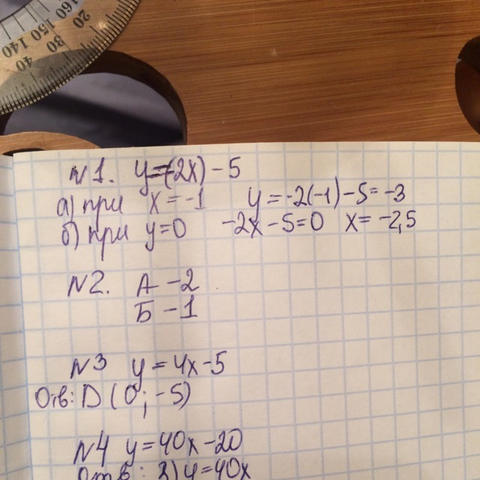 160
150
140
20
30
40
№1. y=-(2x)-5
а) при x=-1 y=-2(-1)-5=-3
б) при y=0 -2x-5=0 x=-2,5
№2. А-2
Б-1
№3 y=4x-5
Отв: D(0;-5)
№4 y=40x-20
Отв: 2) y=40x